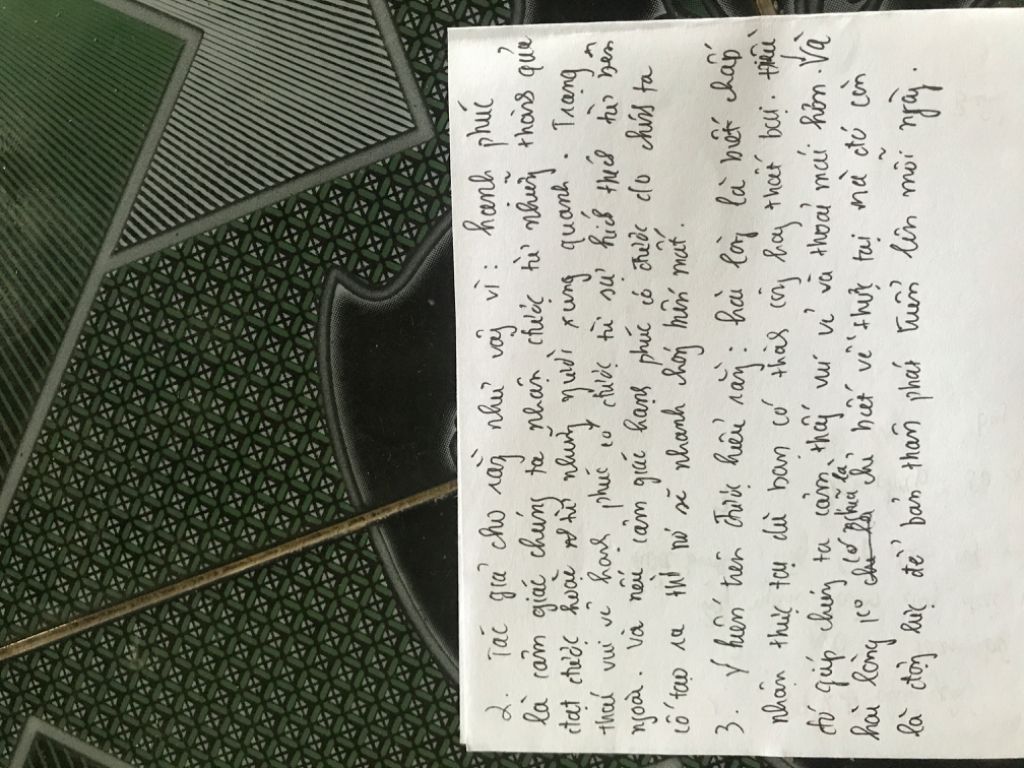 2. Tác giả cho rằng như vậy vì: hạnh phúc
là cảm giác chúng ta nhận được từ những thành quả
đạt được hoặc từ những người xung quanh. Trạng
thái vui vẻ hạnh phúc có được từ sự kích thích từ bên
ngoài. Và nếu cảm giác hạnh phúc có được do chính ta
cố tạo ra thì nó sẽ nhanh chóng biến mất.
3. Ý kiến trên được hiểu rằng: hài lòng là biết chấp
nhận thực tại dù bạn có thành công hay thất bại. Điều
đó giúp chúng ta cảm thấy vui vẻ và thoải mái hơn. Và
hài lòng ko có nghĩa là chỉ biết về thực tại mà đó còn
là động lực để bản thân phát triển lên mỗi ngày.